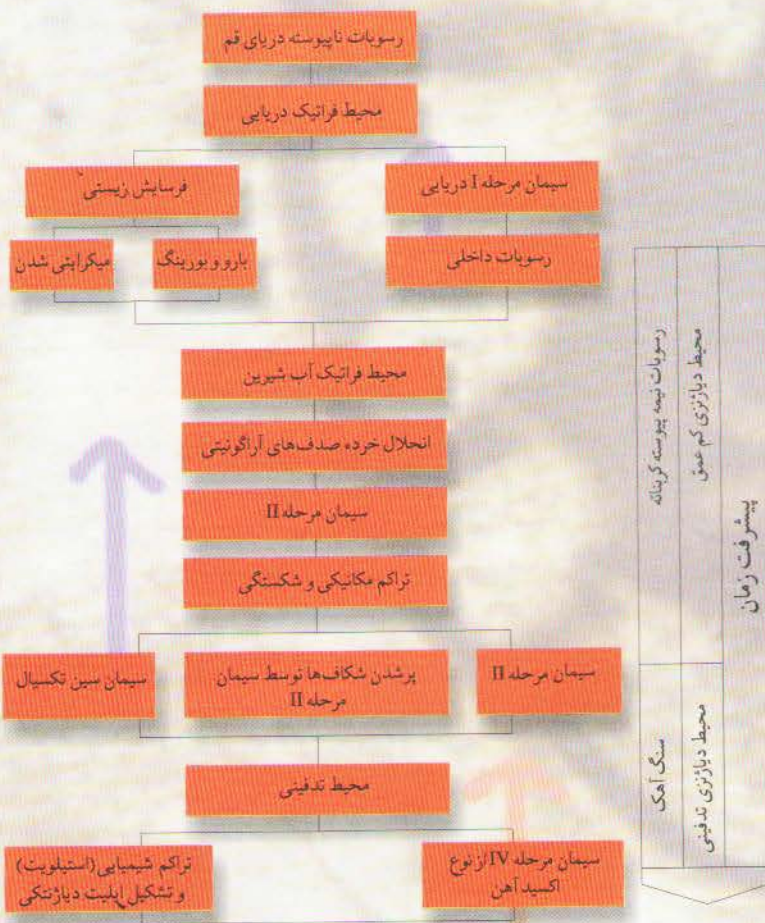 رسوبات ناپیوسته دریای قم
محیط فراتیک دریایی
سیمان مرحله I دریایی
فرسایش زیستی
رسوبات داخلی
بارو و بورینگ
میکرایتی شدن
محیط فراتیک آب شیرین
انحلال خرده صدف‌های آراگونیتی
سیمان مرحله II
تراکم مکانیکی و شکستگی
سیمان مرحله II
پرشدن شکاف‌ها توسط سیمان
مرحله II
سیمان سین تکسیال
محیط تدفینی
سیمان مرحله IV از نوع
اکسید آهن
تراکم شیمیایی (استیلویت)
و تشکیل ایلیت دیاژنتکی
پیشرفت زمان
محیط دیاژنزی کم عمق
محیط دیاژنزی تدفینی
رسوبات نیمه پیوسته کربناته
سنگ آهک